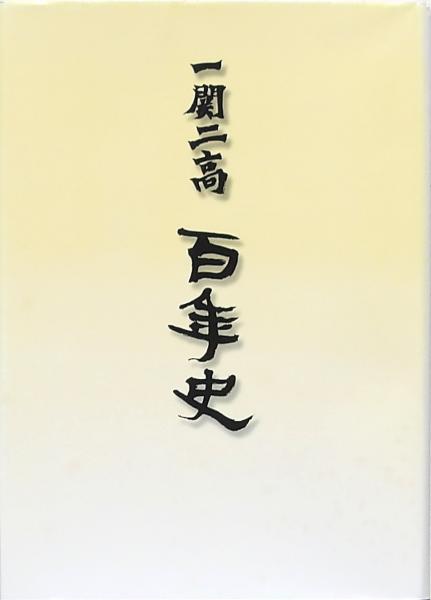 一関二高
百年史